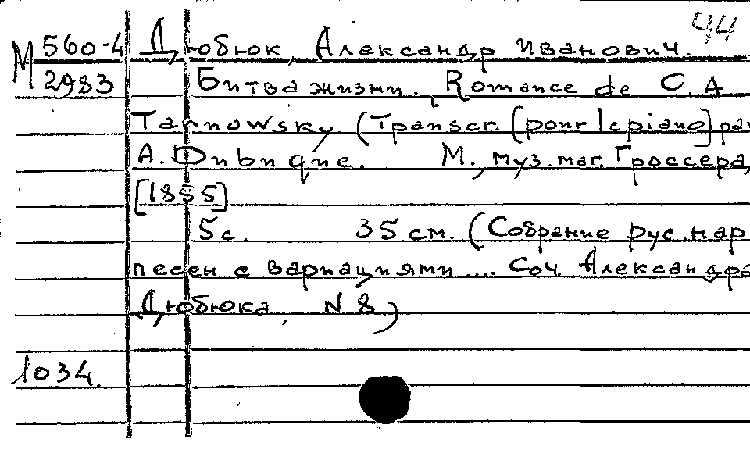 44
М 560-4 Дюбюк, Александр Иванович.
2983 Битва жизни. Romance de C. A.
Tarnowsky. (Transcr. [pour le piano] par
A. Dubuque. М., муз. маг. Гроссера,
[1855]
5 с. 35 см. (Собрание рус. нар.
песен с вариациями .... Соч. Александра
Дюбюка, N 8)
1034.